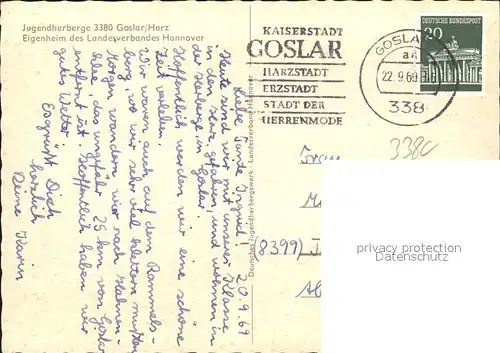 Jugendherberge 3380 Goslar/Harz
Eigenheim des Landesverbandes Hannover
KAISERSTADT
GOSLAR
HARZSTADT
ERZSTADT
STADT DER
HERRENMODE
GOSLAR
22.9.69
338
DEUTSCHE BUNDESPOST
20
3380
20.9.69
Liebe Tante Irmgard!
Heute sind wir mit unserer Klasse
in den Harz gefahren und wohnen in
der Herberge in Goslar.
Hoffentlich werden wir eine schöne
Zeit verleben.
Wir waren auch auf dem Rammels-
berg, wo wir sehr viel klettern mußten.
Morgen wandern wir nach Hahnen-
klee, das ungefähr 25 km von Goslar
entfernt ist. Hoffentlich haben wir
gutes Wetter.
Es grüßt Dich
herzlich
Deine Karin
(8399)
privacy protection
Datenschutz